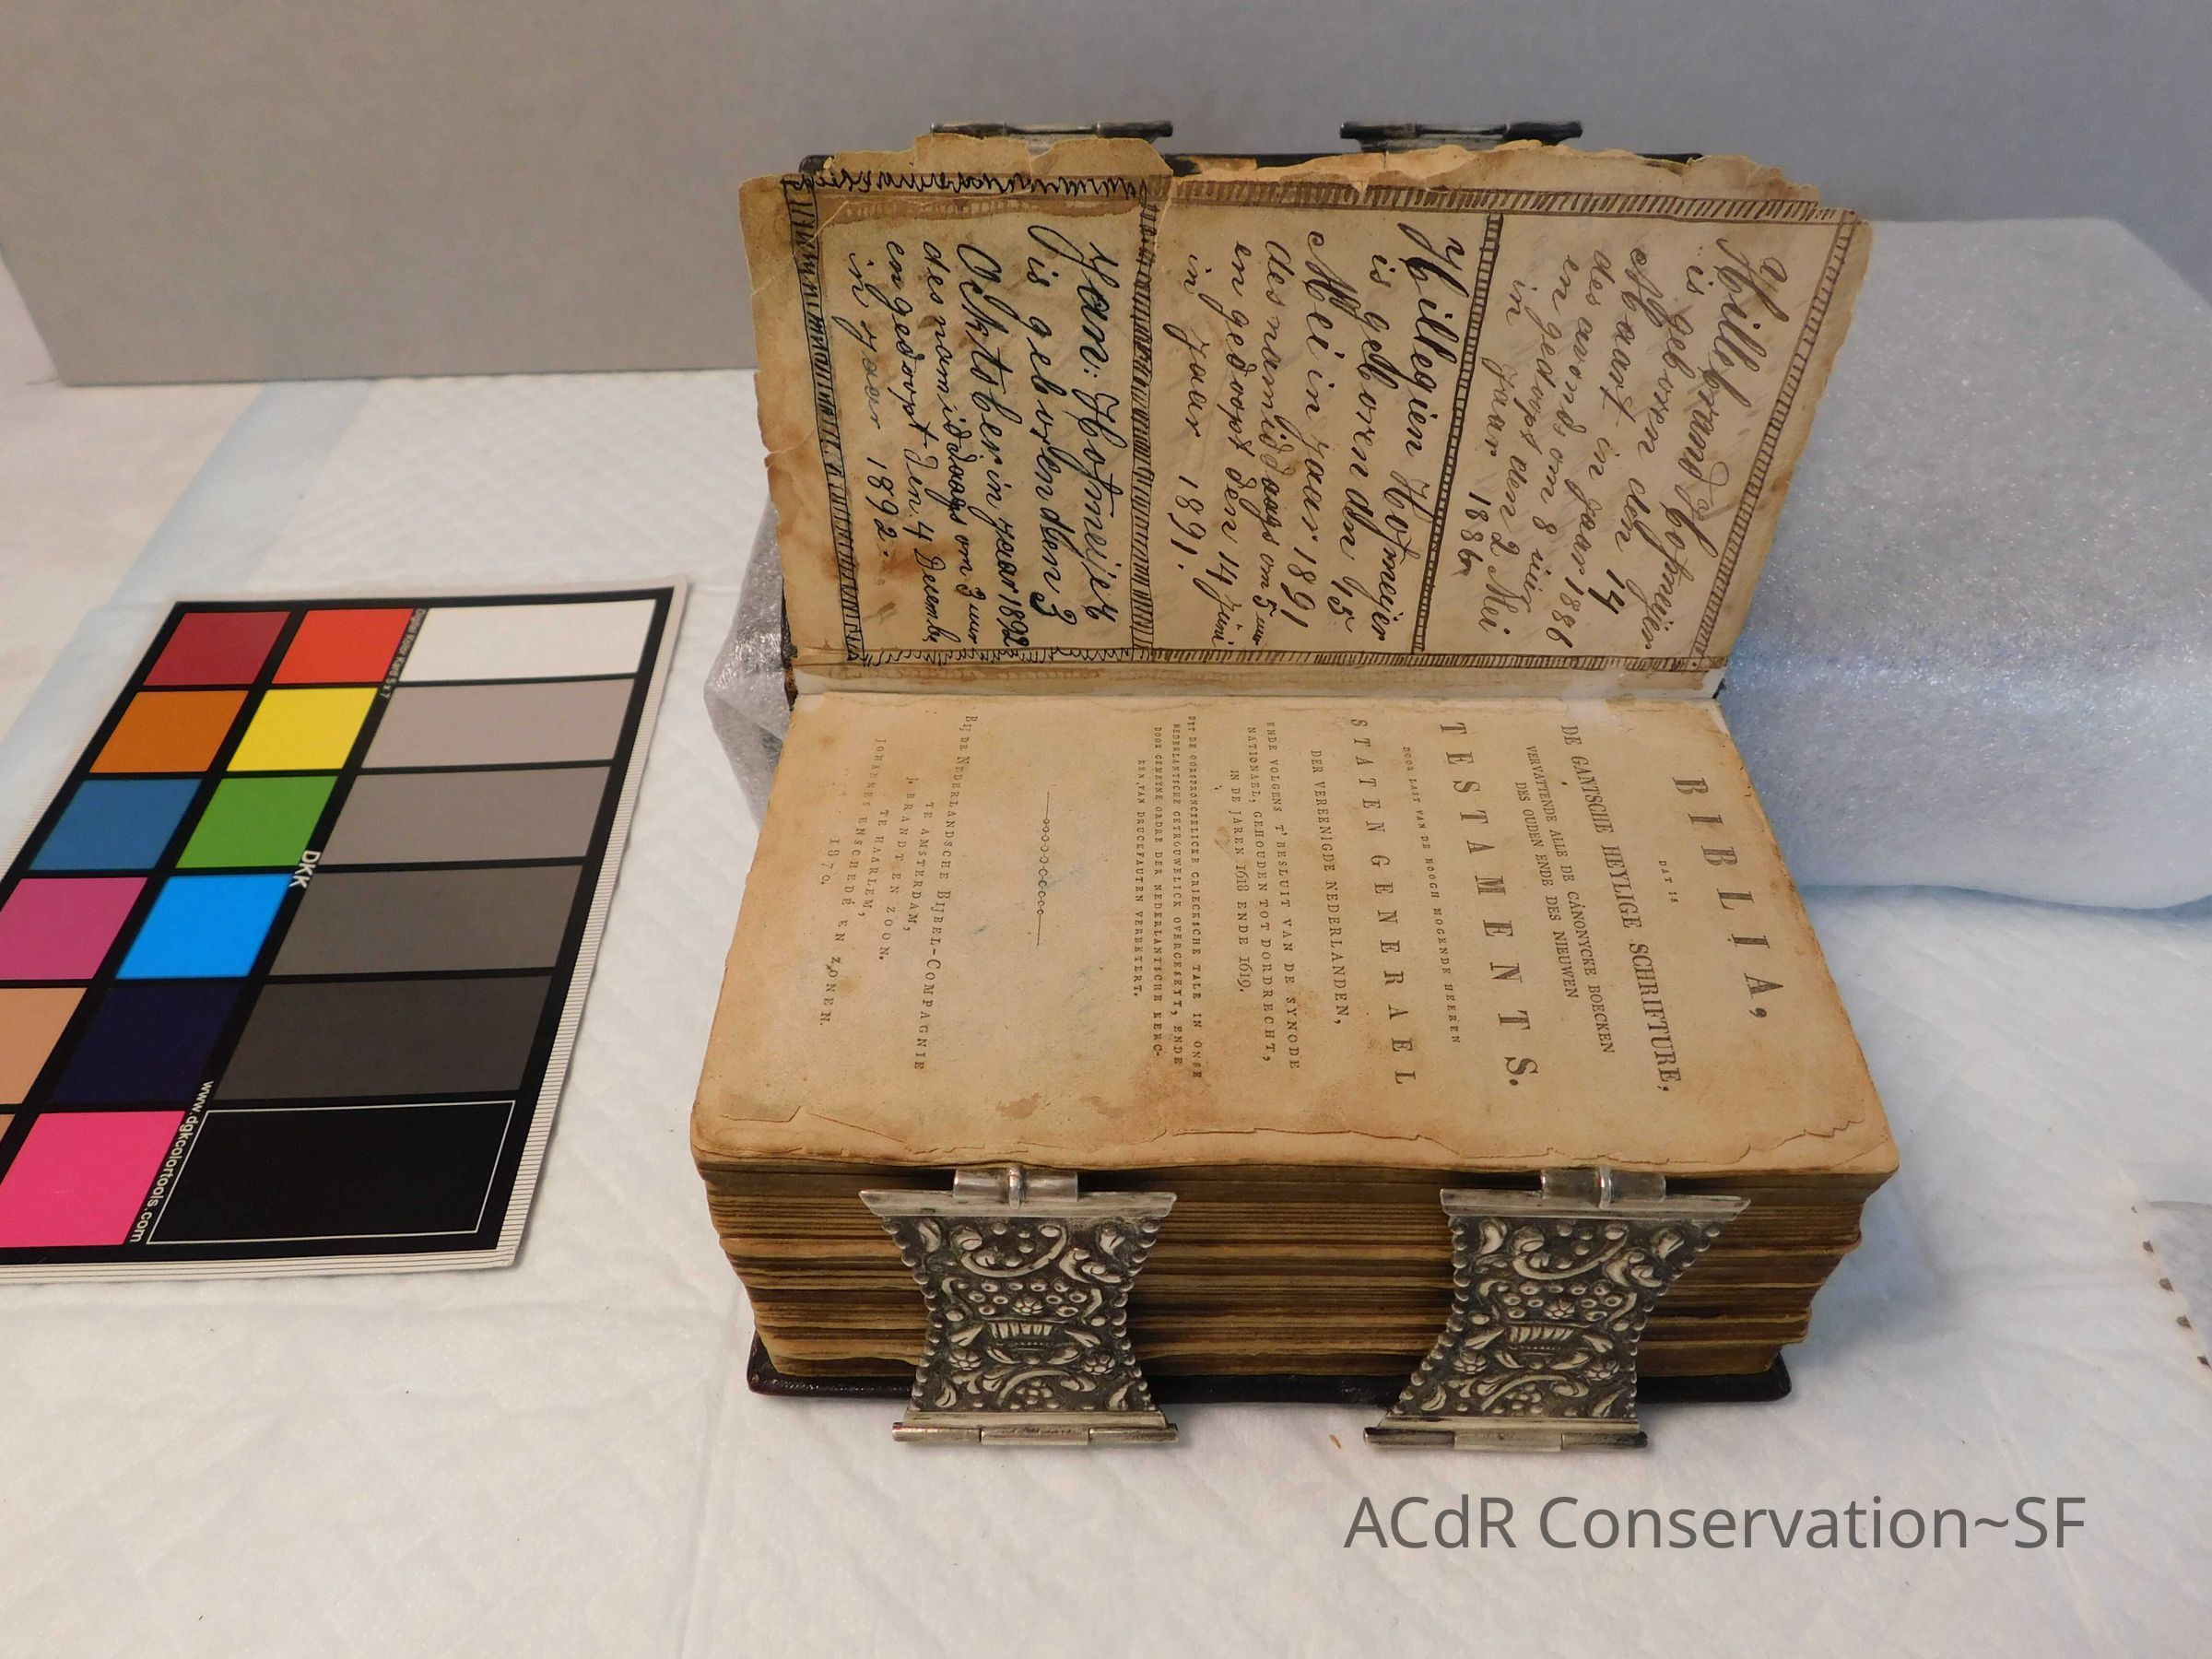 Hillebrand Hofmeijer
is geboren den 14
Maart in Jaar 1886
des avonds om 8 uur
en gedoopt den 2 Mei
in Jaar 1886
Hillegien Hofmeijer
is geboren den 15
Mei in Jaar 1891
des namiddaags om 5 uur
en gedoopt den 14 Juni
in Jaar 1891.
Jan: Hofmeijer
is geboren den 3
Oktober in Jaar 1892
des namiddaags om 3 uur
en gedoopt den 4 Decemb,
in Jaar 1892.
BIBLIA,
DAT IS
DE GANTSCHE HEYLIGE SCHRIFTURE,
VERVATTENDE ALLE DE CANONYCKE BOECKEN
DES OUDEN ENDE DES NIEUWEN
TESTAMENTS.
DOOR LAST VAN DE HOOGH MOGENDE HEEREN
STATEN GENERAEL
DER VEREENIGDE NEDERLANDEN,
ENDE VOLGENS T' BESLUIT VAN DE SYNODE
NATIONAEL, GEHOUDEN TOT DORDRECHT,
IN DE JAREN 1618 ENDE 1619.
UYT DE OORSPRONCKELICKE GRIECKSCHE TALE IN ONSE
NEDERLANTSCHE GETROUWELICK OVERGESETT, ENDE
DOOR GEMEYNE ORDRE DER NEDERLANTSCHE KERC-
KEN, VAN DRUCKFAUTEN VERBETERT.
BIJ DE NEDERLANDSCHE BIJBEL-COMPAGNIE
TE AMSTERDAM,
J. BRANDT EN ZOON.
TE HAARLEM,
JOHANNES ENSCHEDÉ EN ZONEN.
1870.
DKK
www.dgkcolortools.com
ACdR Conservation~SF